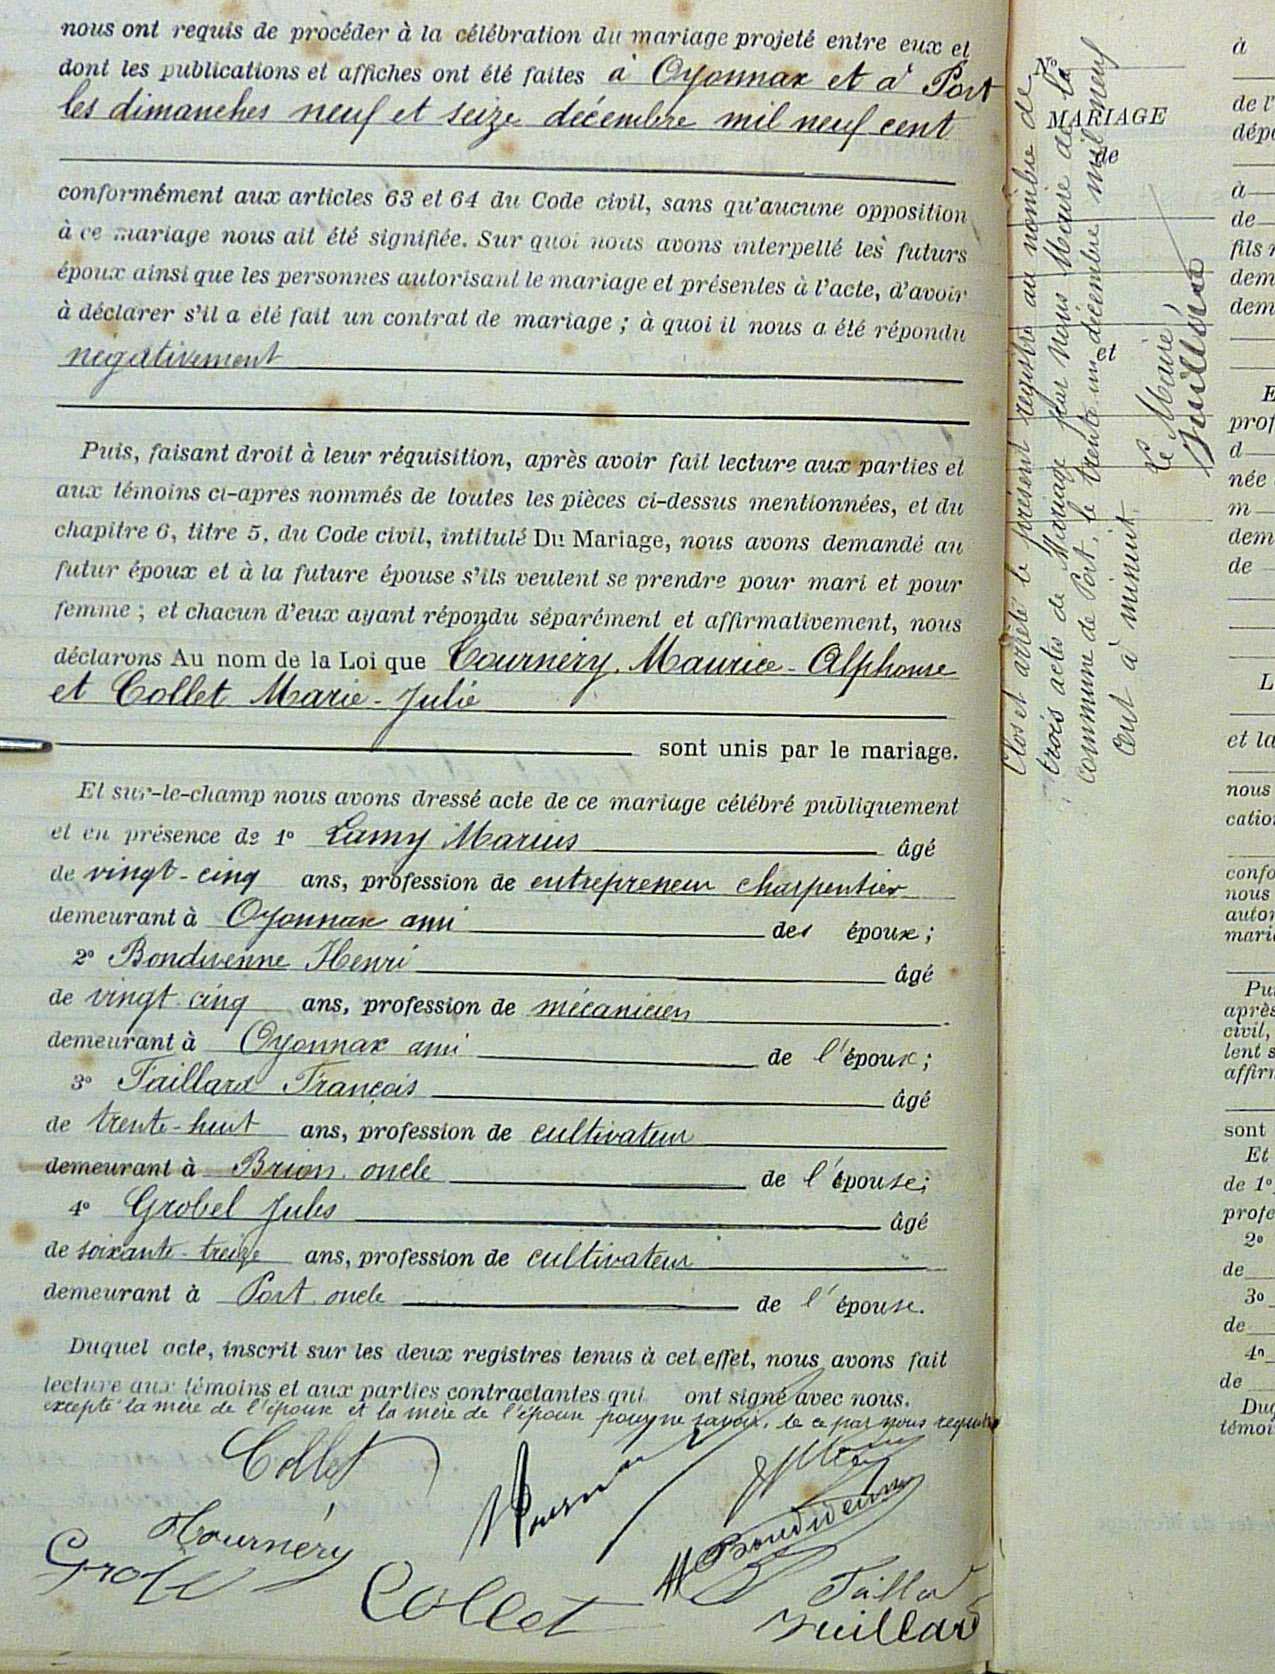 nous ont requis de procéder à la célébration du mariage projeté entre eux et
dont les publications et affiches ont été faites à Oyonnax et à Port
les dimanches neuf et seize décembre mil neuf cent
conformément aux articles 63 et 64 du Code civil, sans qu'aucune opposition
à ce mariage nous ait été signifiée. Sur quoi nous avons interpellé les futurs
époux ainsi que les personnes autorisant le mariage et présentes à l'acte, d'avoir
à déclarer s'il a été fait un contrat de mariage ; à quoi il nous a été répondu
négativement
Puis, faisant droit à leur réquisition, après avoir fait lecture aux parties et
aux témoins ci-après nommés de toutes les pièces ci-dessus mentionnées, et du
chapitre 6, titre 5, du Code civil, intitulé Du Mariage, nous avons demandé au
futur époux et à la future épouse s'ils veulent se prendre pour mari et pour
femme ; et chacun d'eux ayant répondu séparément et affirmativement, nous
déclarons Au nom de la Loi que Tournéry, Maurice-Alphonse
et Collet Marie-Julie
sont unis par le mariage.
Et sur-le-champ nous avons dressé acte de ce mariage célébré publiquement
et en présence de 1° Lamy Marius âgé
de vingt-cinq ans, profession de entrepreneur charpentier
demeurant à Oyonnax ami des époux ;
2° Bondivenne Henri âgé
de vingt-cinq ans, profession de mécanicien
demeurant à Oyonnax ami de l'époux ;
3° Taillard François âgé
de trente-huit ans, profession de cultivateur
demeurant à Brion oncle de l'épouse ;
4° Grobel Jules âgé
de soixante-treize ans, profession de cultivateur
demeurant à Port oncle de l'épouse.
Duquel acte, inscrit sur les deux registres tenus à cet effet, nous avons fait
lecture aux témoins et aux parties contractantes qui ont signé avec nous.
excepté la mère de l'époux et la mère de l'épouse pour ne savoir, de ce par nous requises
Collet
Tournéry
H Bondivenne
Collet
Taillard
Juillard
Clos et arrêté le présent registre au nombre de
trois actes de Mariage par nous Maire de la
commune de Port, le trente un décembre mil neuf
cent à minuit.
Le Maire
Juillard
N°
MARIAGE
de
et
à
de l'
à
de
fils
dem
dem
prof
d
née
m
dem
de
L
et la
nous
confo
nous
sont
Et
de 1°
profe
2°
de
3°
de
4°
de